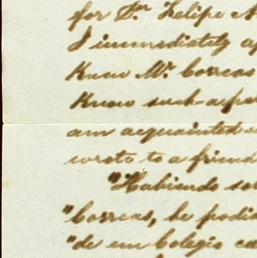 for Sr. Felipe
I immediately
Know Mr. Correas
Know such a
am acquainted
wrote to a friend
"Habiendo
"Correas, he podi
"de un Colegio ca